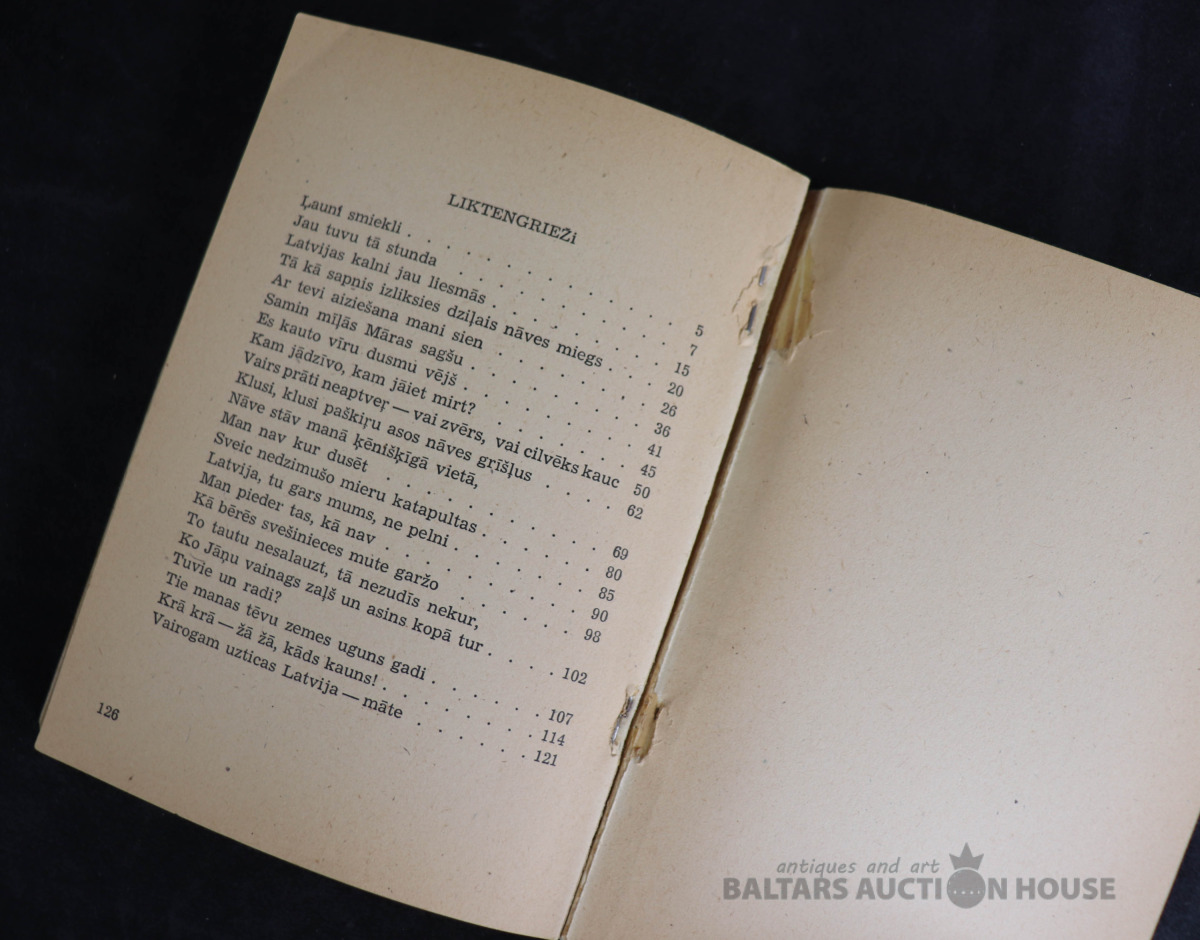 LIKTENGRIEŽi
Ļauni smiekli . . . . . . . . . 5
Jau tuvu tā stunda . . . . . . . . 7
Latvijas kalni jau liesmās . . . . . . . 15
Tā kā sapnis izliksies dziļais nāves miegs . . . 20
Ar tevi aiziešana mani sien . . . . . . 26
Samin mīļās Māras sagšu . . . . . . . 36
Es kauto vīru dusmu vējš . . . . . . . 41
Kam jādzīvo, kam jāiet mirt? . . . . . . 45
Vairs prāti neaptveŗ — vai zvērs, vai cilvēks kauc 50
Klusi, klusi pašķiŗu asos nāves grīšļus . . . . 62
Nāve stāv manā ķēnišķīgā vietā,
Man nav kur dusēt . . . . . . . . 69
Sveic nedzimušo mieru katapultas . . . . . 80
Latvija, tu gars mums, ne pelni . . . . . . 85
Man pieder tas, kā nav . . . . . . . . 90
Kā bērēs svešinieces mute garžo . . . . . 98
To tautu nesalauzt, tā nezudīs nekur,
Ko Jāņu vainags zaļš un asins kopā tur . . . . 102
Tuvie un radi?
Tie manas tēvu zemes uguns gadi . . . . . 107
Krā krā — žā žā, kāds kauns! . . . . . . 114
Vairogam uzticas Latvija — māte . . . . . 121
126
antiques and art
BALTARS AUCTION HOUSE